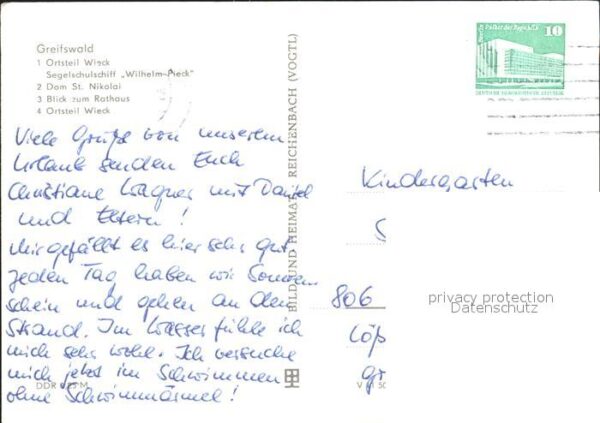 Greifswald
1 Ortsteil Wieck
Segelschulschiff „Wilhelm-Pieck"
2 Dom St. Nikolai
3 Blick zum Rathaus
4 Ortsteil Wieck
Viele Grüße von unserem
Urlaub senden Euch
Christiane Wagner mit Daniel
und Eltern!
Mir gefällt es hier sehr gut,
jeden Tag haben wir Sonnen
schein und gehen an den
Strand. Im Wasser fühle ich
mich sehr wohl. Ich versuche
mich jetzt im Schwimmen
ohne Schwimmärmel!
DDR M
BILD UND HEIMAT REICHENBACH (VOGTL)
V 11 50
10
Berlin Palast der Republik
DEUTSCHE DEMOKRATISCHE REPUBLIK
Kindergarten
806
Löp
gr
privacy protection
Datenschutz